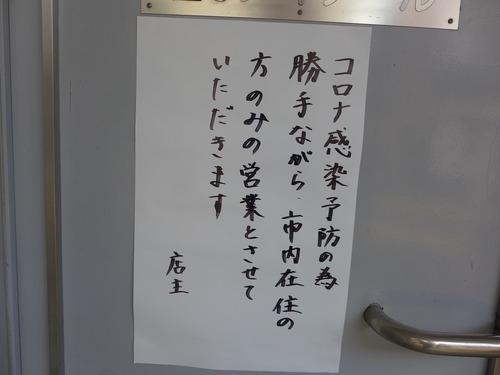 コロナ感染予防の為
勝手ながら、市内在住の
方のみの営業とさせて
いただきます
店主